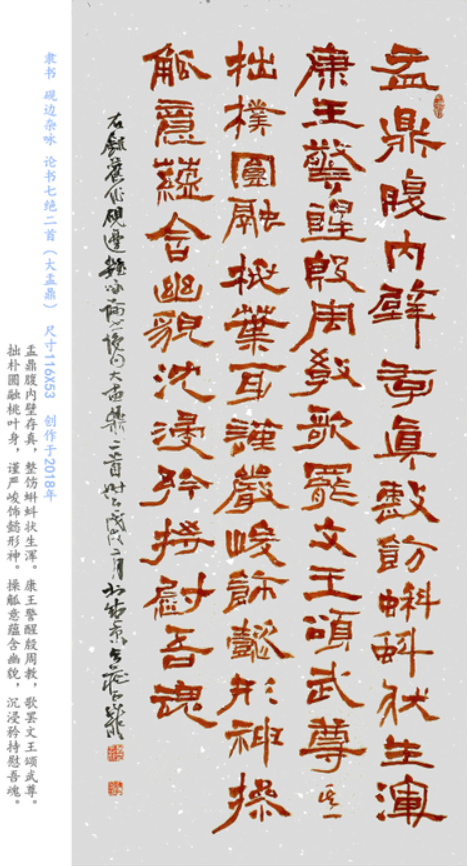 盂鼎腹内壁存真整飭蝌蚪状生渾
康王警醒殷周教歌罷文王頌武尊其一
拙樸圓融桃葉身謹嚴峻飾懿形神操
觚意蕴含幽貌沈浸矜持慰吾魂
舊作硯邊雜咏論書大盂鼎二首時在戊戌
隶书 砚边杂咏 论书七绝二首（大盂鼎） 尺寸116X53 创作于2018年
盂鼎腹内壁存真，整饬蝌蚪状生浑。康王警醒殷周教，歌罢文王颂武尊。
拙朴圆融桃叶身，谨严峻饰懿形神。操觚意蕴含幽貌，沉浸矜持慰吾魂。